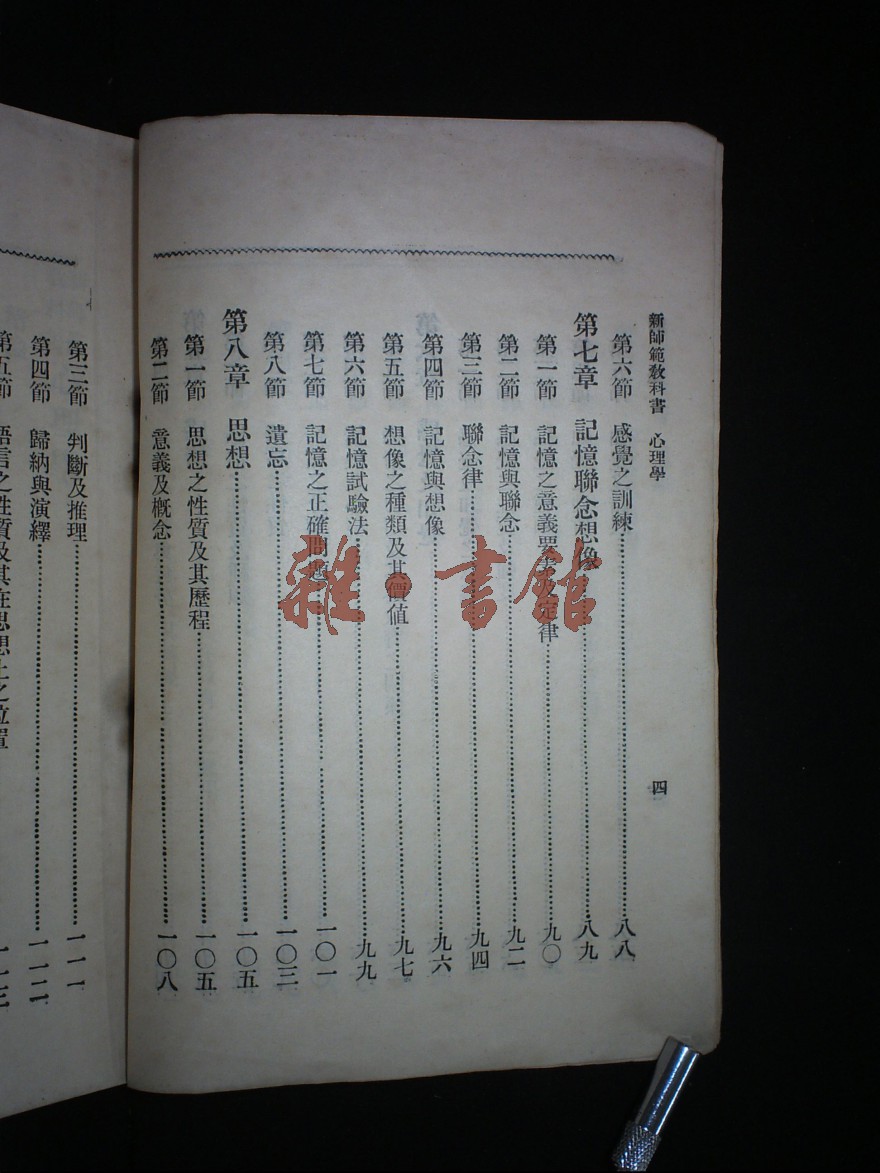 新師範敎科書 心理學 四
第六節 感覺之訓練 八八
第七章 記憶聯念想像 八九
第一節 記憶之意義要素及定律 九〇
第二節 記憶與聯念 九二
第三節 聯念律 九四
第四節 記憶與想像 九六
第五節 想像之種類及其價値 九七
第六節 記憶試驗法 九九
第七節 記憶之正確問題 一〇一
第八節 遺忘 一〇三
第八章 思想 一〇五
第一節 思想之性質及其歷程 一〇五
第二節 意義及槪念 一〇八
第三節 判斷及推理 一一一
第四節 歸納與演繹 一一二
第五節 語言之性質及其在思想上之位置
雜·書館